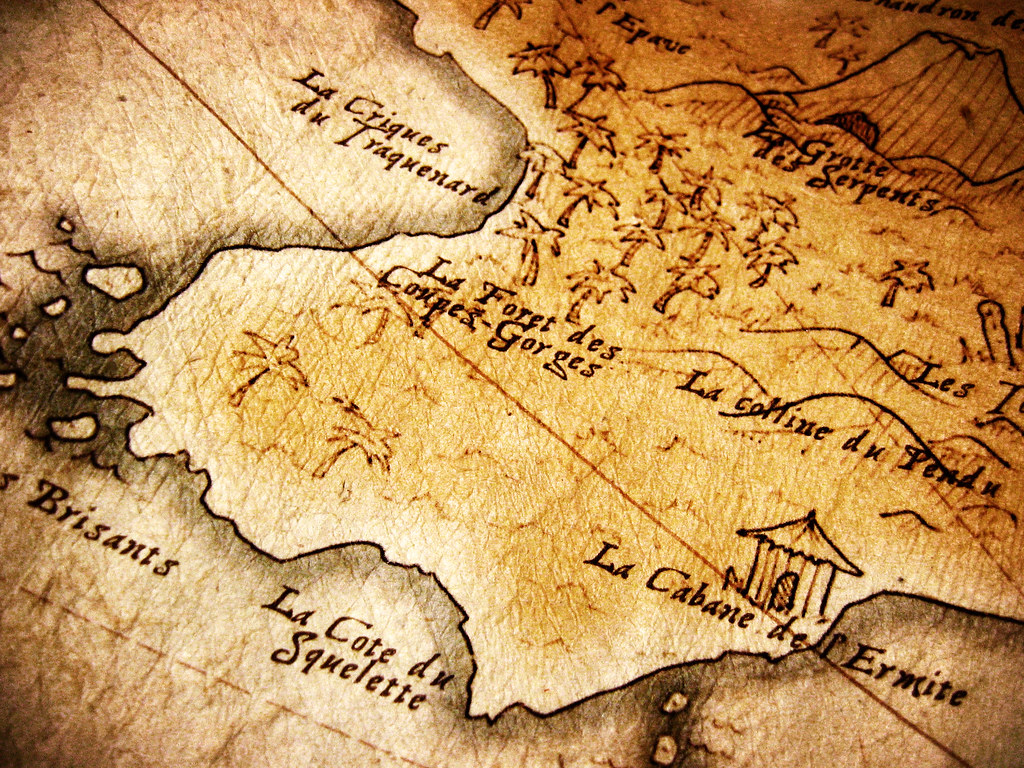 l'Epave
La Criques
du Traquenard
La Grotte
des Serpents
La Foret des
Coupes-Gorges
Les
La colline du Pendu
Brisants
La Cabane de l'Ermite
La Cote du
Squelette